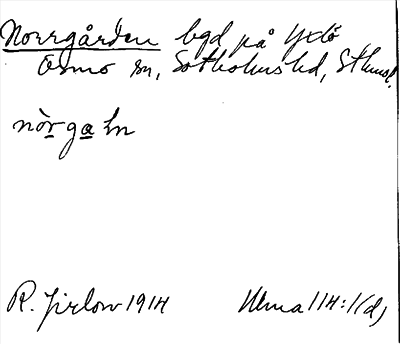 Norrgården bgd på Yxlö
Ösmo sn, Sotholms hd, Sthms l.
nòrgaṇ
R. Jirlow 1914 Ulma 114:1(d)